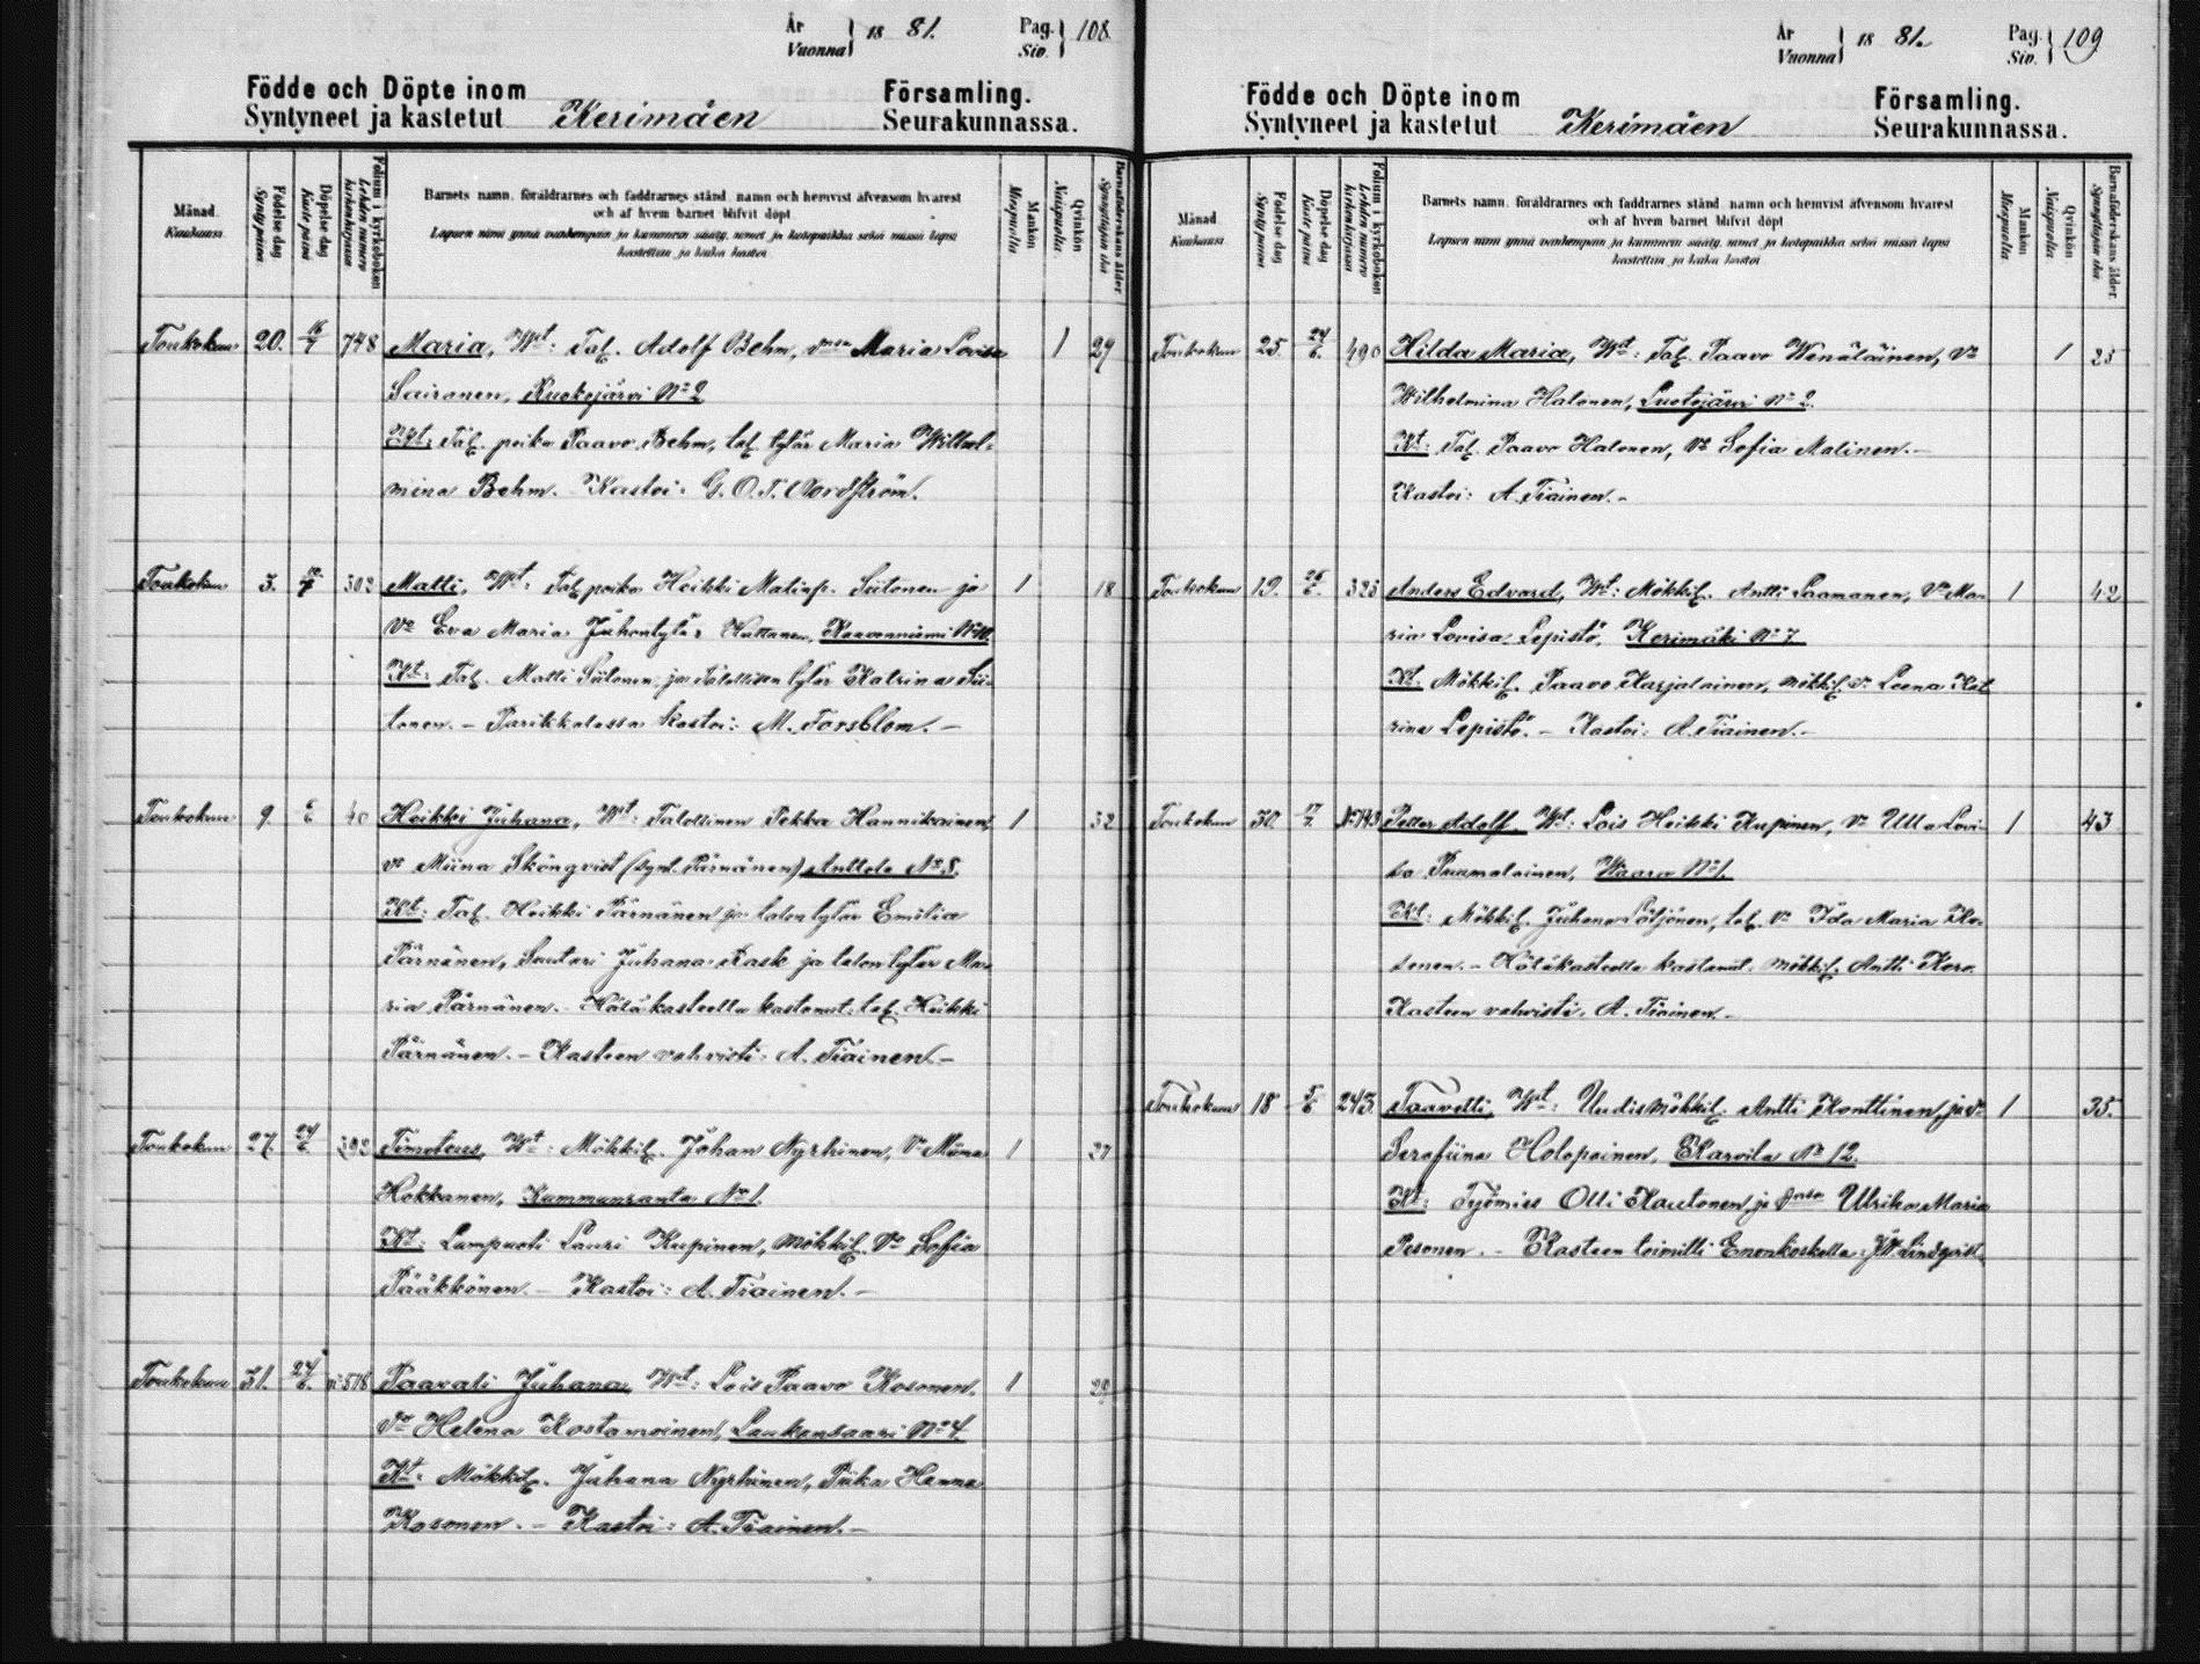 År
Vuonna } 18 81. Pag. Siv. } 108
Födde och Döpte inom Församling.
Syntyneet ja kastetut Kerimäen Seurakunnassa.
Månad. Kuukausi.
Födelse dag Synty päivä
Döpelse dag Kaste päivä
Folium i kyrkoboken Lehden numero kirkonkirjassa
Barnets namn, föräldrarnes och faddrarnes stånd, namn och hemvist äfvensom hvarest
och af hvem barnet blifvit döpt.
Lapsen nimi ynnä vanhempain ja kummein sääty, nimet ja kotopaikka sekä missä lapsi
kastettiin ja kuka kastoi
Mankön Miespuolia
Qvinkön Naispuolia
Barnaföderskans ålder Synnyttäjän ikä
Toukokuu 20. 16/7 748 Maria, Wt: Tal. Adolf Behm, vmsa Maria Lovisa 1 29
Sairanen, Ruokojärvi No 2
Kt: Tal. poika Paavo Behm, tal. tytär Maria Wilhel-
mina Behm. - Kastoi: G. O. T. Nordström.
Toukokuu 3. 302 Matti, Wt: Tal. poika Heikki Matinp. Siitonen ja 1 18
Vo Eva Maria Juhontytär Kuttanen,
Kt: Tal. Matti Siitonen ja talollisen tytär Katrina Sii-
tonen. - Parikkalassa kastoi: M. Forsblom. -
Toukokuu 9. 6/6 40 Heikki Juhana, Wt: Talollinen Pekka Hannikainen, 1 32
vo Miina Skönqvist (synt. Pärnänen) Anttola No 8.
Kt: Tal. Heikki Pärnänen ja talon tytär Emilia
Pärnänen, Suutari Juhana Rask ja talon tytär Ma-
ria Pärnänen. - Hätäkasteella kastanut: tal. Heikki
Pärnänen. - Kasteen vahvisti: A. Tiainen. -
Toukokuu 27. 24/6 292 Timoteus, Wt: Mökkil. Johan Nyrhinen, Vo Miina 1 27
Hokkanen, Kumpuranta No 1.
Kt: Lampuoti Lauri Kupinen, mökkil. Vo Sofia
Pääkkönen. - Kastoi: A. Tiainen. -
Toukokuu 31. 24/6 578 Paavali Juhana, Wt: Lois Paavo Kosonen, 1 29
Vo Helena Kostamoinen, Laukansaari No 4.
Kt: Mökkil. Juhana Nyrhinen, Piika Hanna
Kosonen. - Kastoi: A. Tiainen. -
År
Vuonna } 18 81. Pag. Siv. } 109
Födde och Döpte inom Församling.
Syntyneet ja kastetut Kerimäen Seurakunnassa.
Månad. Kuukausi
Födelse dag Synty päivä
Döpelse dag Kaste päivä
Folium i kyrkoboken Lehden numero kirkonkirjassa
Barnets namn, föräldrarnes och faddrarnes stånd, namn och hemvist äfvensom hvarest
och af hvem barnet blifvit döpt
Lapsen nimi ynnä vanhempain ja kummein sääty, nimet ja kotopaikka sekä missä lapsi
kastettiin ja kuka kastoi
Mankön Miespuolia
Qvinkön Naispuolia
Barnaföderskans ålder Synnyttäjän ikä
Toukokuu 25. 24/6. 490 Hilda Maria, Wt: Tal. Paavo Wenäläinen, Vo 1 25
Wilhelmina Halonen, Luotojärvi No 2.
Kt: Tal. Paavo Halonen, Vo Sofia Malinen. -
Kastoi: A. Tiainen. -
Toukokuu 19. 26/6. 325 Anders Edvard, Wt: Mökkil. Antti Laamanen, Vo Ma- 1 42
ria Lovisa Lepistö, Kerimäki No 7
Kt. Mökkil. Paavo Karjalainen, mökkil. vo Leena Kat-
rina Lepistö. - Kastoi: A. Tiainen. -
Toukokuu 30. 17/7. No 743 Petter Adolf, Wt: Lois Heikki Kupinen, Vo Ulla Lovi- 1 43
sa Puumalainen, Waara No 1.
Kt: Mökkil. Juhana Löljönen, tal. Vo Ida Maria Ko-
sonen. - Hätäkasteella kastanut mökkil. Antti Kero.
Kasteen vahvisti: A. Tiainen. -
Toukokuu 18 5/6 243 Taavetti, Wt: Uudismökkil. Antti Konttinen ja vo 1 35.
Serafiina Holopainen, Karvila No 12.
Kt: Työmies Olli Kautonen ja Ulrika Maria
Pesonen. - Kasteen toimitti Enonkoskella: J. W. Lindqvist.